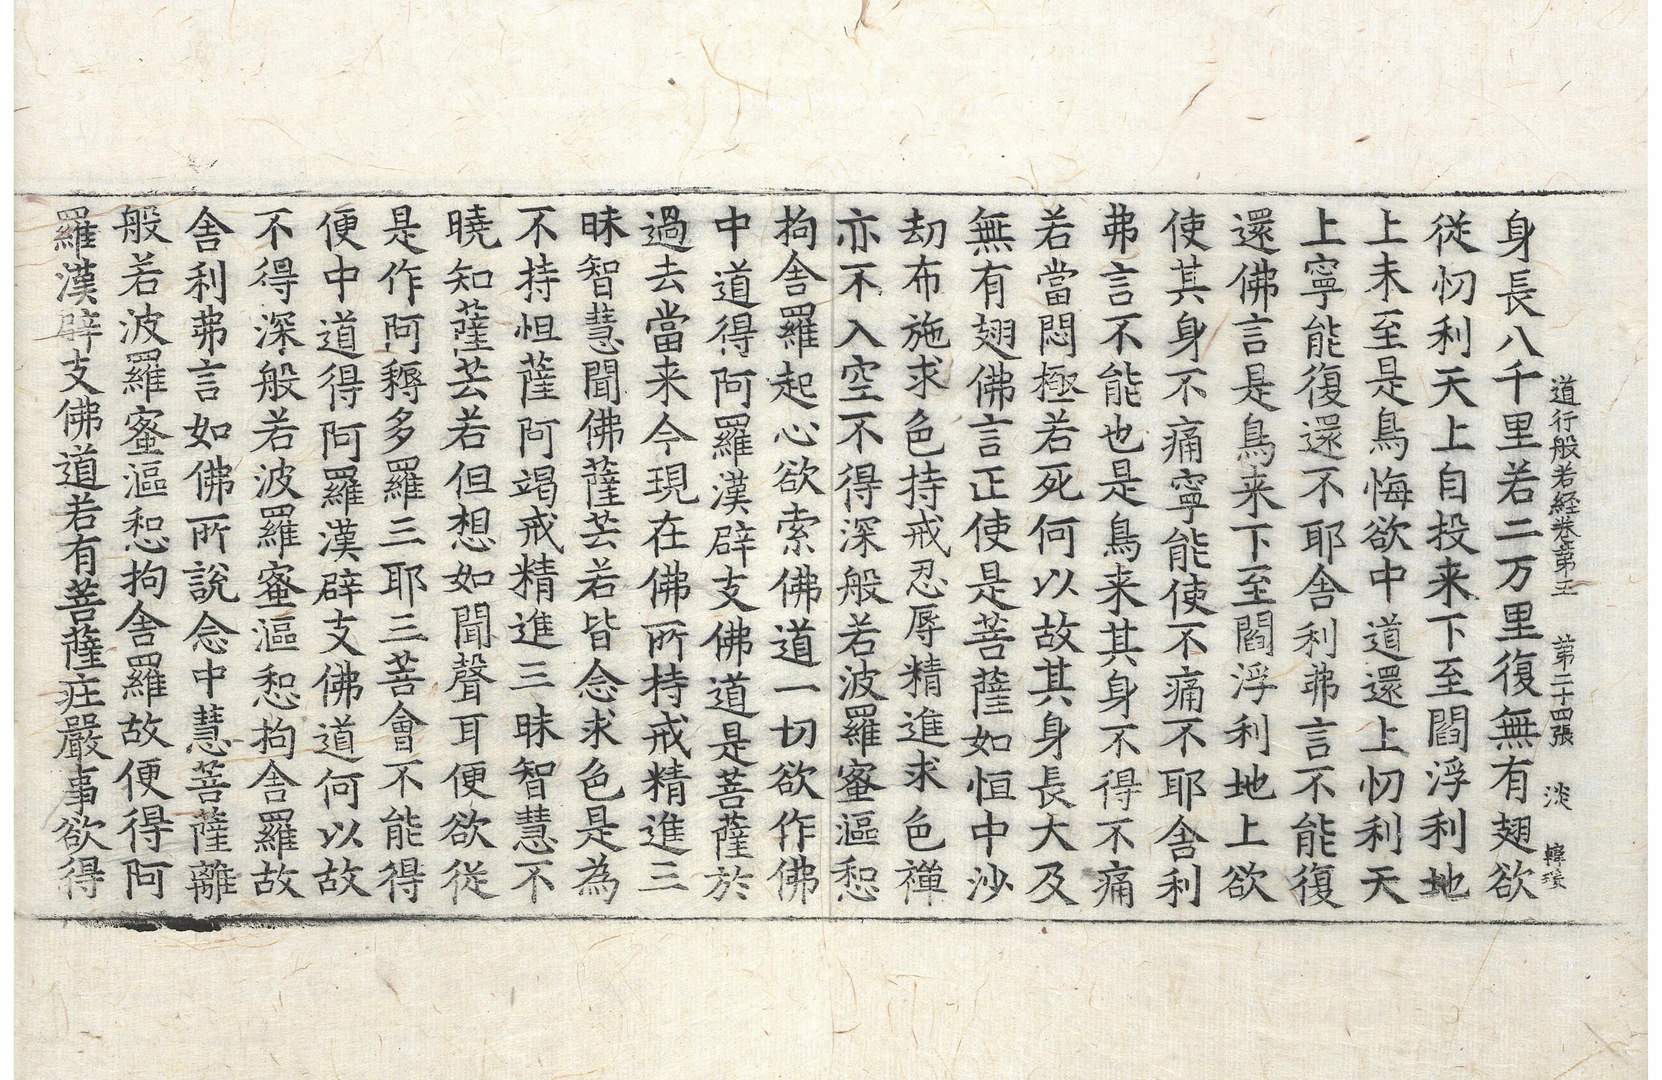 道行般若経卷第五 第二十四張 淡
身長八千里若二万里復無有翅欲
従忉利天上自投来下至閻浮利地
上未至是鳥悔欲中道還上忉利天
上寧能復還不耶舎利弗言不能復
還佛言是鳥来下至閻浮利地上欲
使其身不痛寧能使不痛不耶舎利
弗言不能也是鳥来其身不得不痛
若當悶極若死何以故其身長大及
無有翅佛言正使是菩薩如恒中沙
劫布施求色持戒忍辱精進求色禅
亦不入空不得深般若波羅蜜漚惒
拘舎羅起心欲索佛道一切欲作佛
中道得阿羅漢辟支佛道是菩薩於
過去當来今現在佛所持戒精進三
昧智慧聞佛薩芸若皆念求色是為
不持怛薩阿竭戒精進三昧智慧不
曉知薩芸若但想如聞聲耳便欲従
是作阿耨多羅三耶三菩會不能得
便中道得阿羅漢辟支佛道何以故
不得深般若波羅蜜漚惒拘舎羅故
舎利弗言如佛所説念中慧菩薩離
般若波羅蜜漚惒拘舎羅故便得阿
羅漢辟支佛道若有菩薩庄嚴事欲得